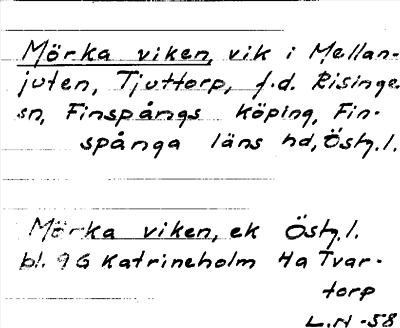 Mörka viken, vik i Mellan-
juten, Tjuttorp, f.d. Risinge
sn, Finspångs köping, Fin-
spånga läns hd, Östg.l.
Mörka viken, ek Östg.l.
bl. 9G Katrineholm Ha Tvar-
torp
L.N -58